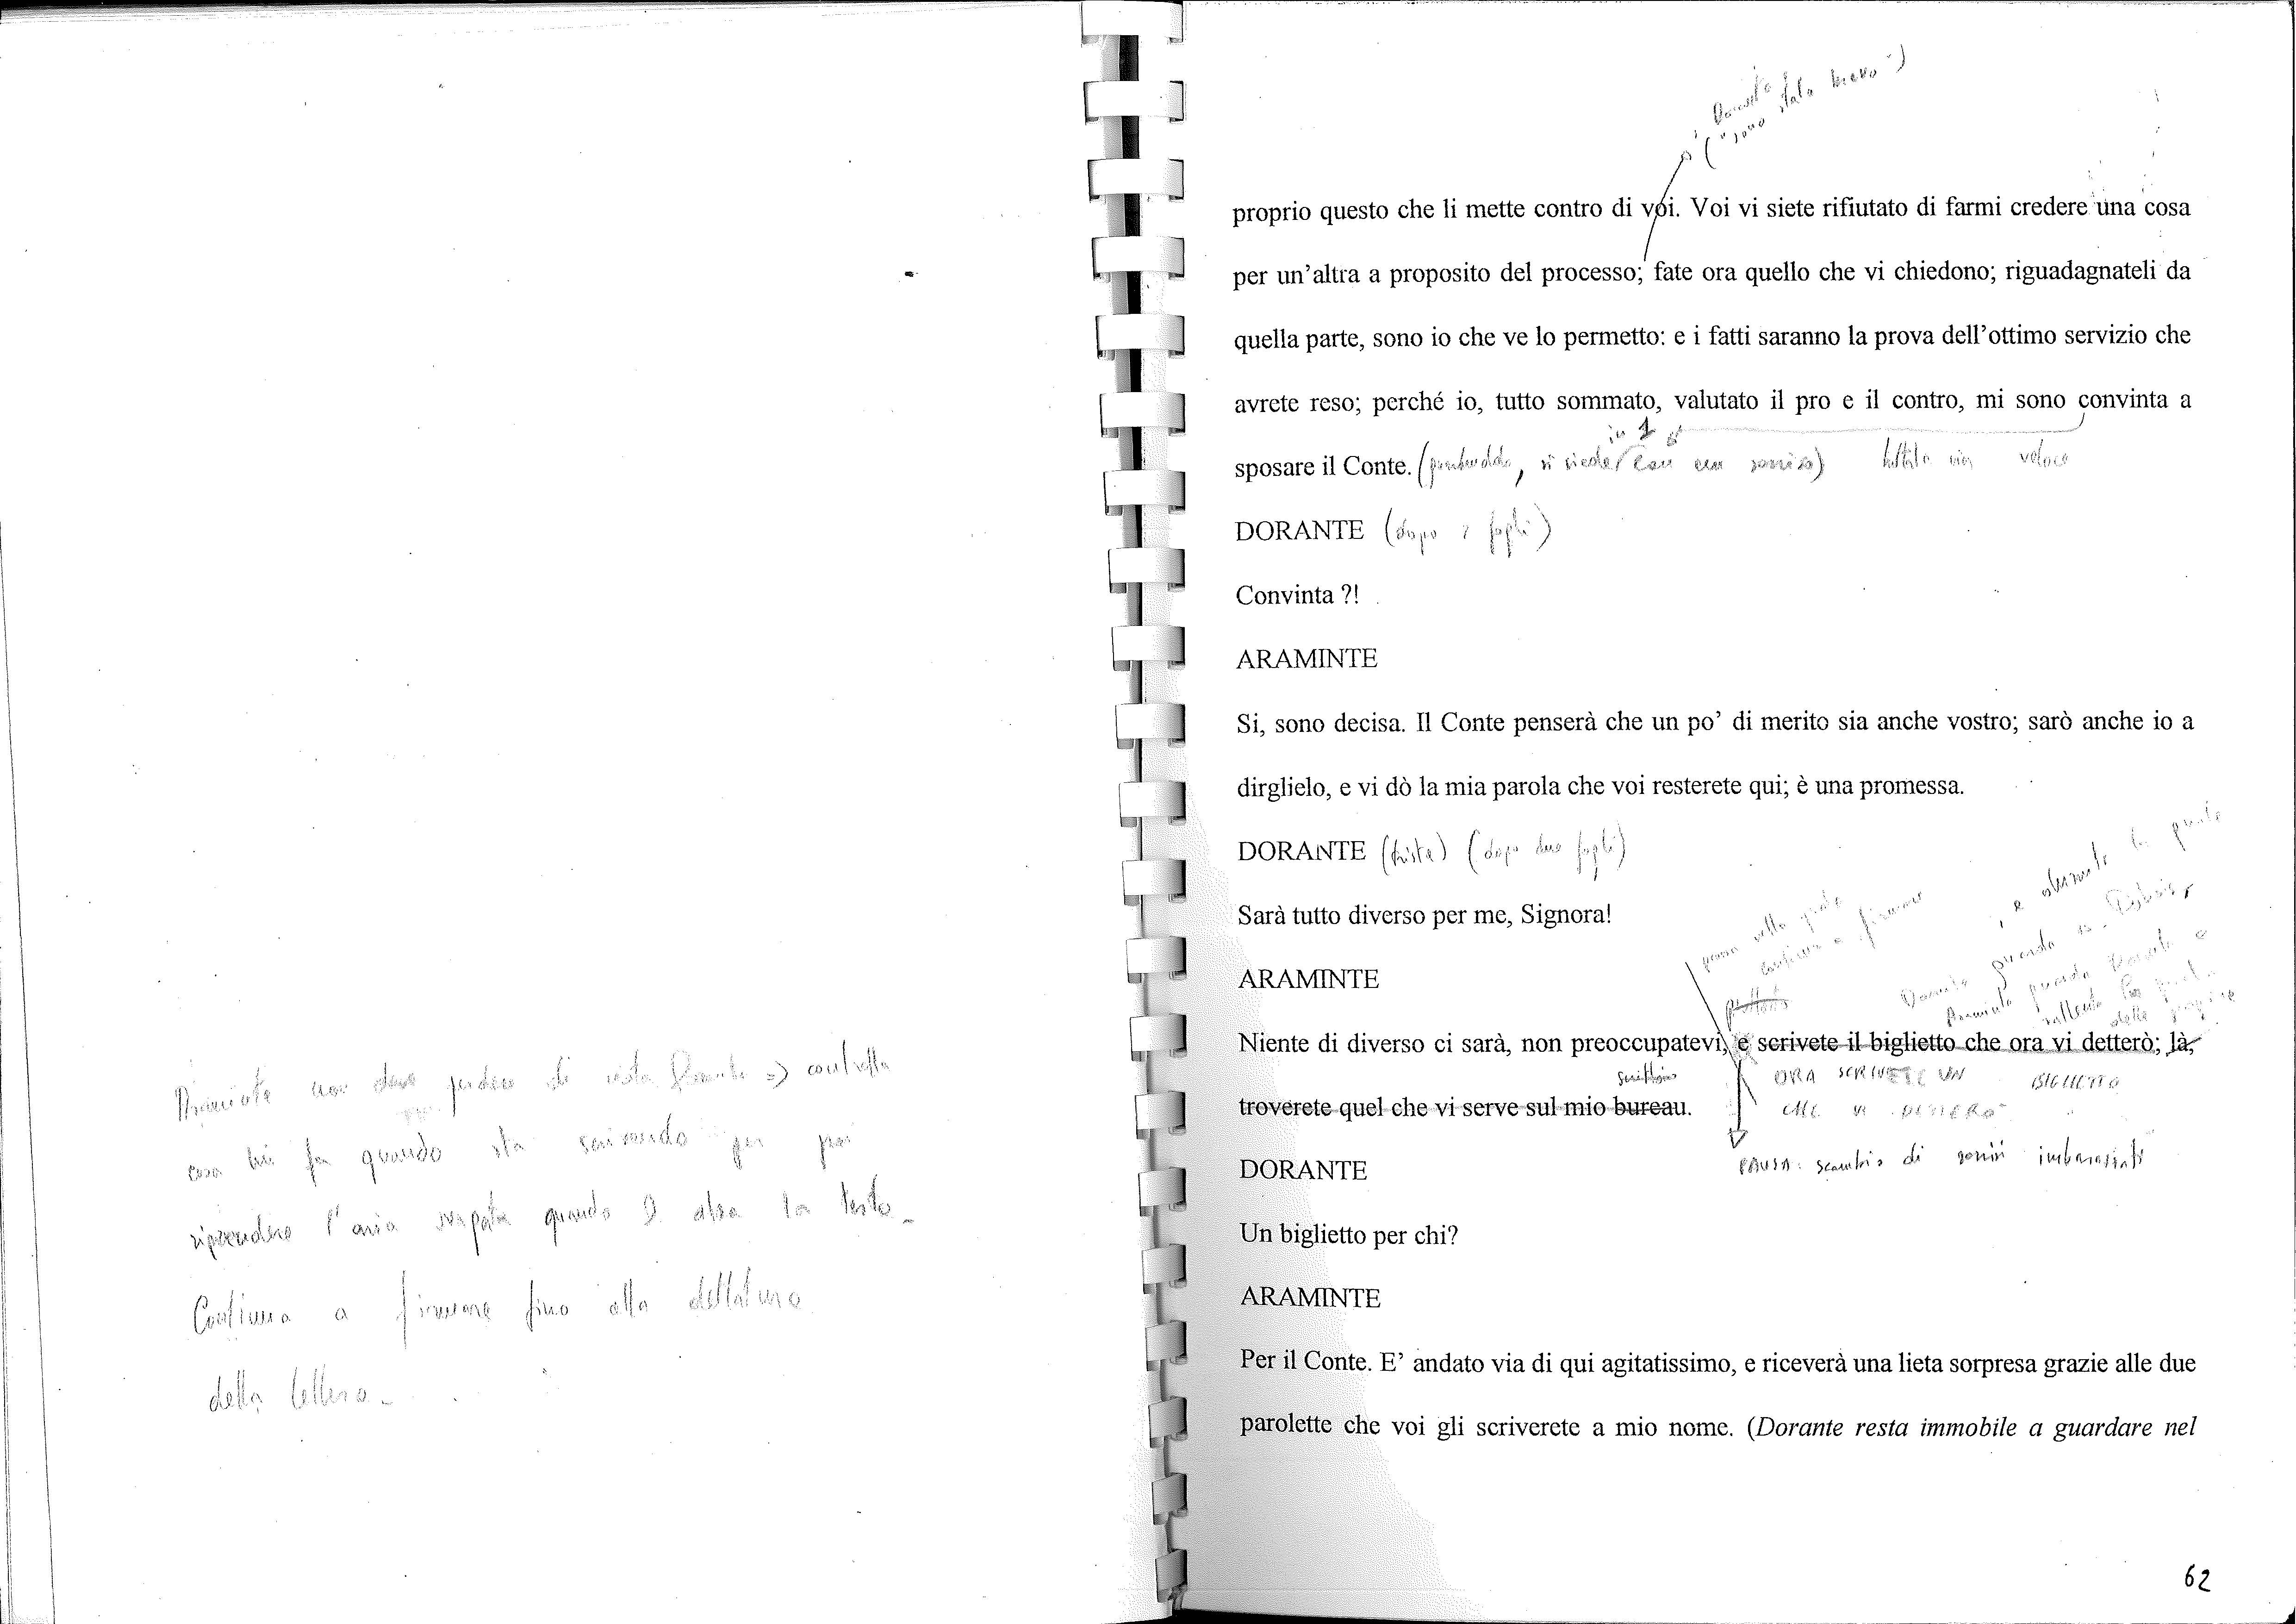 Araminte non deve perdere di vista Dorante => controlla
cosa lui fa quando sta scrivendo per poi
riprendere l'aria svagata quando D. alza la testa_
Continua a firmare fino alla dettatura
della lettera_
Dorante
("sono stato bravo")
proprio questo che li mette contro di voi. Voi vi siete rifiutato di farmi credere una cosa
per un'altra a proposito del processo; fate ora quello che vi chiedono; riguadagnateli da
quella parte, sono io che ve lo permetto: e i fatti saranno la prova dell'ottimo servizio che
avrete reso; perché io, tutto sommato, valutato il pro e il contro, mi sono convinta a
in 1
sposare il Conte. ( , si siede con un sorriso) tuttala via veloce
DORANTE (dopo 2 fogli)
Convinta ?!
ARAMINTE
Si, sono decisa. Il Conte penserà che un po' di merito sia anche vostro; sarò anche io a
dirglielo, e vi dò la mia parola che voi resterete qui; è una promessa.
DORANTE (triste) (dopo due fogli)
Sarà tutto diverso per me, Signora!
ARAMINTE
continua a firmare
Dorante quando
Araminte guarda Dorante e
Niente di diverso ci sarà, non preoccupatevi, e scrivete il biglietto che ora vi detterò; là,
ORA SCRIVETE UN BIGLIETTO
troverete quel che vi serve sul mio bureau.
CHE VI DETTERO'
PAUSA: scambio di sorrisi imbarazzati
DORANTE
Un biglietto per chi?
ARAMINTE
Per il Conte. E' andato via di qui agitatissimo, e riceverà una lieta sorpresa grazie alle due
parolette che voi gli scriverete a mio nome. (Dorante resta immobile a guardare nel
62